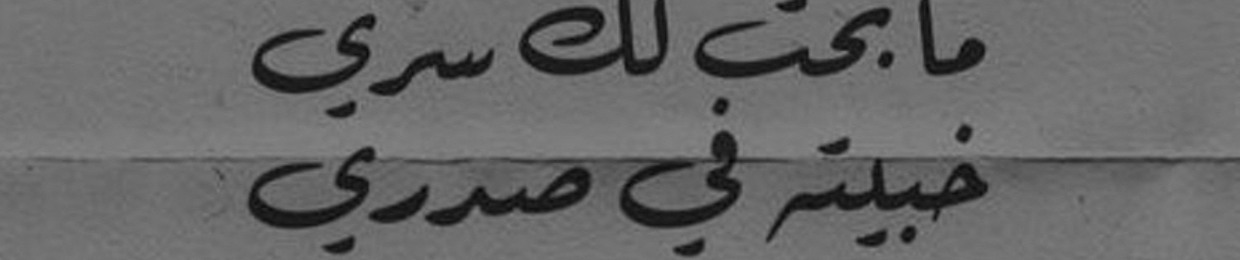 ما بحت لك سري
خبيته في صدري